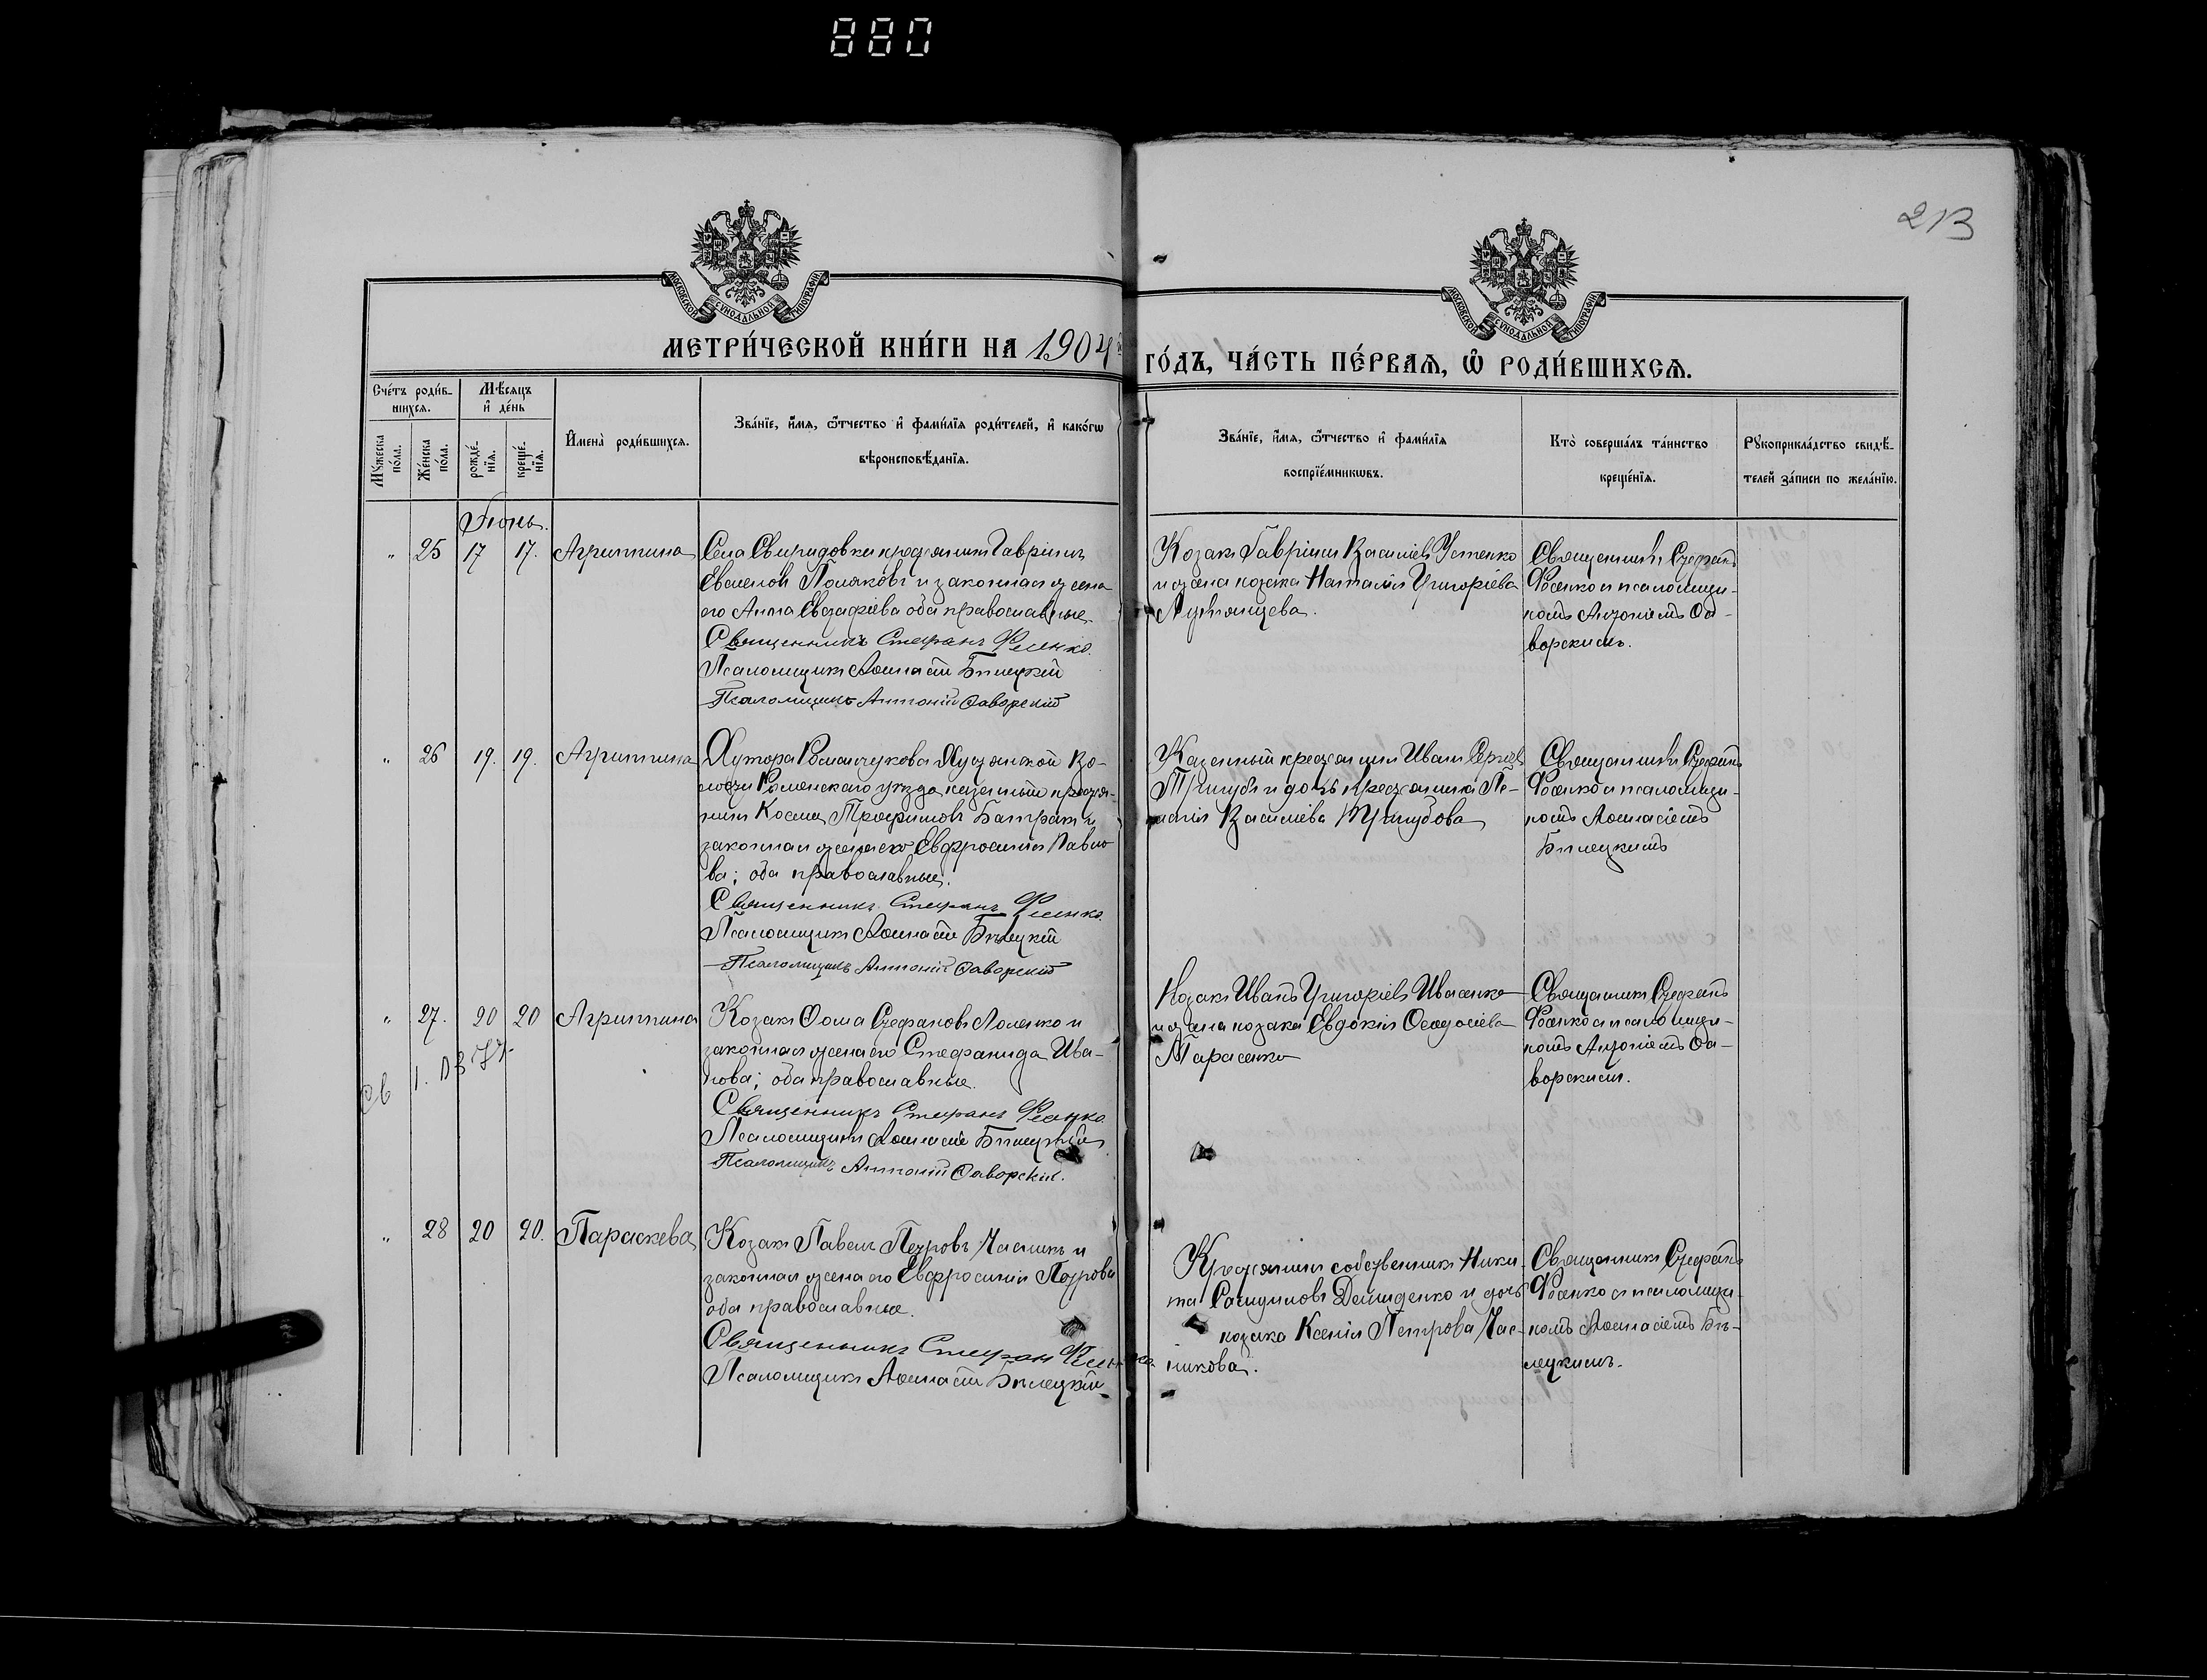 880
213
МОСКОВСКОЙ СУНОДАЛЬНОЙ ТИПОГРАФІИ
МОСКОВСКОЙ СУНОДАЛЬНОЙ ТИПОГРАФІИ
МЕТРИ́ЧЕСКОЙ КНИ́ГИ НА 1904 ГО́ДЪ, ЧА́СТЬ ПЕ́РВАЯ, Ѡ҆ РОДИ́ВШИХСЯ.
Сче́тъ роди́в-
шихся.
Мѣ́сяцъ
и҆ де́нь
Мꙋ́жеска по́ла.
Же́нска по́ла.
рожде́-
нїя.
креще́-
нїя.
И҆мена̀ роди́вшихся.
Зва́нїе, и҆́мя, ѻ҆́тчество и҆ фами́лїя роди́телей, и҆ како́гѡ
вѣроисповѣ́данїя.
Зва́нїе, и҆́мя, ѻ҆́тчество и҆ фами́лїя
воспрїе́мникѡвъ.
Кто̀ соверша́лъ та́инство
креще́нїя.
Рꙋкоприкла́дство свидѣ́-
телей за́писи по жела́нїю.
Іюнь.
" 25 17 17. Агриппина
Села Свиридовки крестьянинъ Гавріилъ
Поляковъ и законная жена
его Анна Евстафіева оба православные.
Священникъ Стефанъ Фесенко.
Псаломщикъ Аѳанасій Бѣлецкій
Псаломщикъ Антоній Ѳаворскій
Козакъ Гавріилъ Василіевъ Устенко
и жена козака Наталія Григоріева
Священникъ Стефанъ
Фесенко съ псаломщи-
комъ Антоніемъ Ѳа-
ворскимъ.
" 26 19. 19. Агриппина
Хутора во-
лости Роменскаго уѣзда казенный крестья-
нинъ Косма Трофимовъ Батракъ и
законная жена его Евфросинія Павло-
ва; оба православные.
Священникъ Стефанъ Фесенко.
Псаломщикъ Аѳанасій Бѣлецкій
Псаломщикъ Антоній Ѳаворскій
Казенный крестьянинъ Иванъ Сергіевъ
и дочь крестьянина Пе-
лагія Василіева
Священникъ Стефанъ
Фесенко съ псаломщи-
комъ Аѳанасіемъ
Бѣлецкимъ
" 27. 20 20 Агриппина
Козакъ Ѳома Стефановъ и
законная жена его Стефанида Ива-
нова; оба православные.
Священникъ Стефанъ Фесенко.
Псаломщикъ Аѳанасій Бѣлецкій
Псаломщикъ Антоній Ѳаворскій.
Козакъ Иванъ Григоріевъ Ивасенко
и жена козака Евдокія Ѳеодосіева
Тарасенко
Священникъ Стефанъ
Фесенко съ псаломщи-
комъ Антоніемъ Ѳа-
ворскимъ.
" 28 20 20. Параскева
Козакъ Павелъ Петровъ Часникъ и
законная жена его Евфросинія Петрова
оба православные.
Священникъ Стефанъ Фесенко
Псаломщикъ Аѳанасій Бѣлецкій
Крестьянинъ собственникъ Ники-
та Демиденко и дочь
козака Ксенія Петрова Час-
никова.
Священникъ Стефанъ
Фесенко съ псаломщи-
комъ Аѳанасіемъ Бѣ-
лецкимъ.